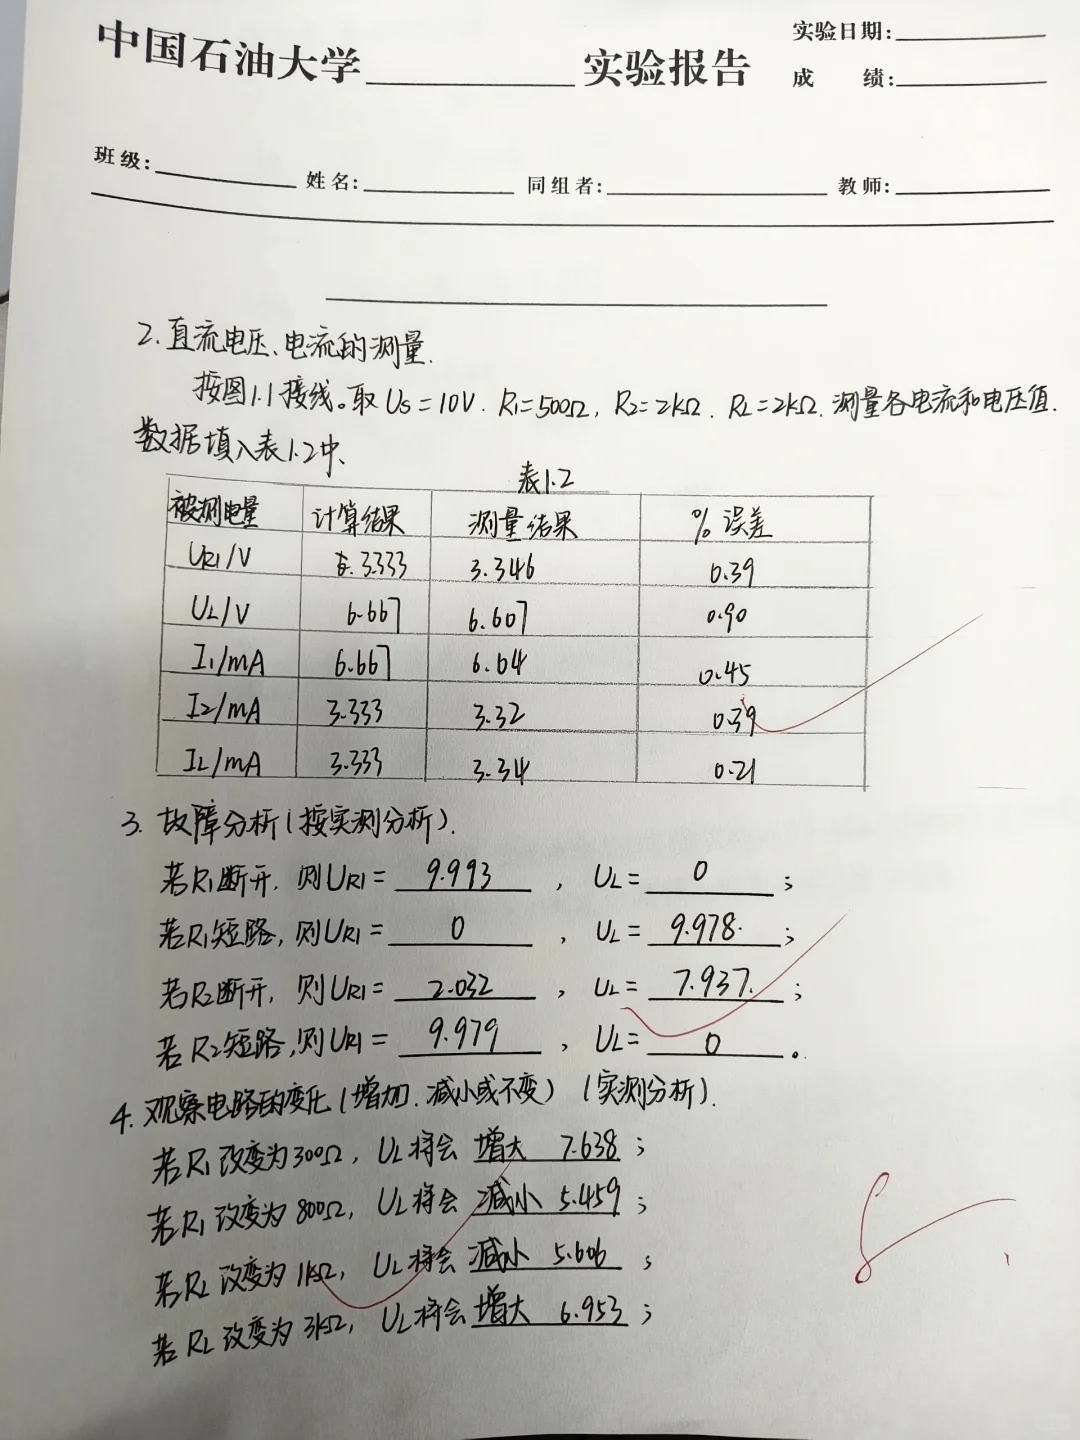 中国石油大学 实验报告
实验日期:
成 绩:
班级: 姓名: 同组者: 教师:
2. 直流电压、电流的测量.
按图1.1接线。取 Us=10V. R1=500Ω, R2=2kΩ. RL=2kΩ. 测量各电流和电压值.
数据填入表1.2中、
表1.2
被测电量 计算结果 测量结果 % 误差
UR1/V 3.333 3.346 0.39
UL/V 6.667 6.607 0.90
I1/mA 6.667 6.64 0.45
I2/mA 3.333 3.32 0.39
IL/mA 3.333 3.34 0.21
3. 故障分析(按实测分析).
若R1断开, 则UR1= 9.993 , UL= 0 ;
若R1短路, 则UR1= 0 , UL= 9.978. ;
若R2断开, 则UR1= 2.032 , UL= 7.937. ;
若R2短路,则UR1= 9.979 , UL= 0 。
4. 观察电路的变化(增加.减小或不变) (实测分析).
若R1改变为300Ω, UL将会 增大 7.638 ;
若R1改变为800Ω, UL将会 减小 5.459 ;
若RL改变为1kΩ, UL将会 减小 5.606 ;
若RL改变为3kΩ, UL将会 增大 6.953 ;
8